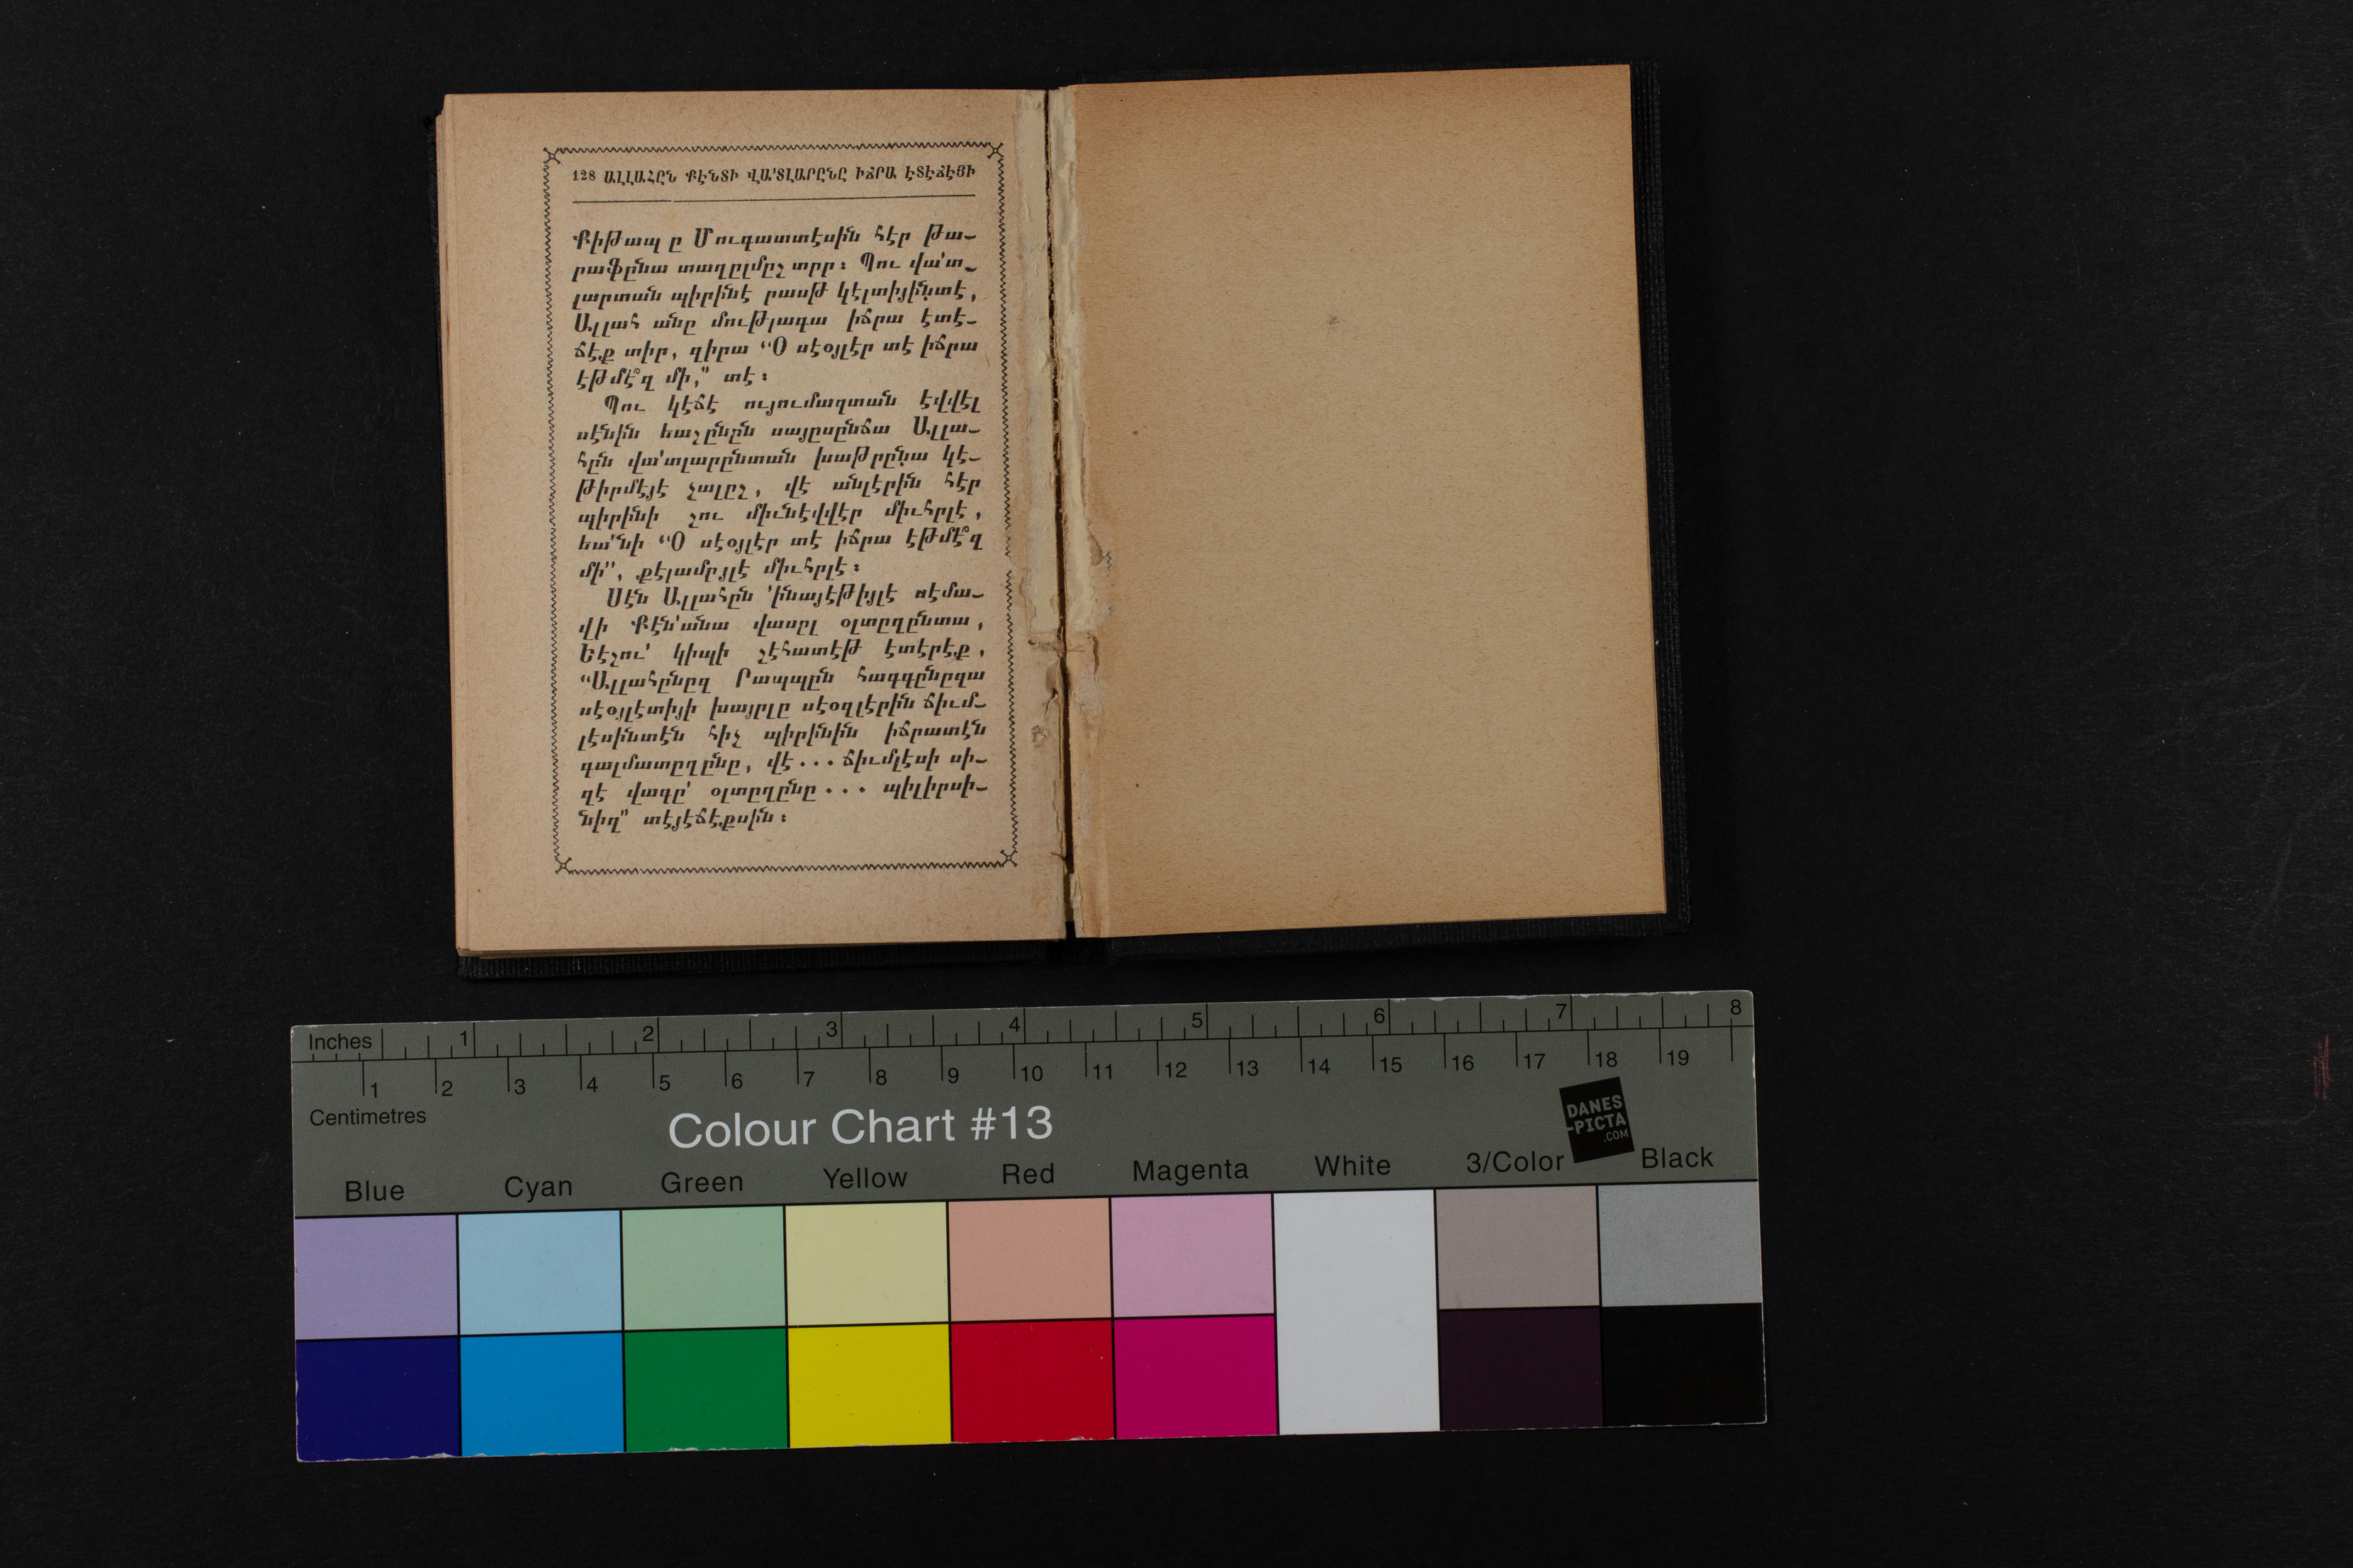 128 ԱԼԼԱՀԸՆ ՔԷՆՏԻ ՎԱ՚ՏԼԱՐԸՆԸ ԻՃՐԱ ԷՏԷՃԷՅԻ
Քիթապ ը Մուգատտէսին հէր թա–
րաֆընա տաղըլմըշ տըր։ Պու վա՛տ–
լարտան պիրինէ րասթ կէլտիյին̣տէ,
Ալլահ անը մութլագա իճրա էտէ–
ճէք տիր, զիրա “Օ սէօյլէր տէ իճրա
էթմէ՞զ մի,” տէ։
Պու կէճէ ույումազտան էվվէլ
սէնին եաշընըն սայըսընճա Ալլա–
հըն վա՛տլարընտան խաթըրըն̣ա կէ–
թիրմէյէ չալըշ, վէ անլէրին հէր
պիրինի շու միւնէվվէր միւհրլէ,
եա՛նի “Օ սէօյլէր տէ իճրա էթմէ՞զ
մի”, քէլամըյլէ միւհրլէ։
Սէն Ալլահըն ՚ինայէթիյլէ սէմա–
վի Քէն՚անա վասըլ օլտըղընտա,
Եէշու՛ կիպի շէհատէթ էտէրէք,
“Ալլահընըզ Րապպըն հագգընըզա
սէօյլէտիյի խայրլը սէօզլէրին ճիւմ–
լէսինտէն հիչ պիրինին իճրատէն
գալմատըղընը, վէ... ճիւմլէսի սի–
զէ վագը՛ օլտըղընը... պիլիրսի–
նիզ” տէյէճէքսին։
Inches 1 2 3 4 5 6 7 8
1 2 3 4 5 6 7 8 9 10 11 12 13 14 15 16 17 18 19
Centimetres
Colour Chart #13
DANES
-PICTA
.COM
Blue Cyan Green Yellow Red Magenta White 3/Color Black